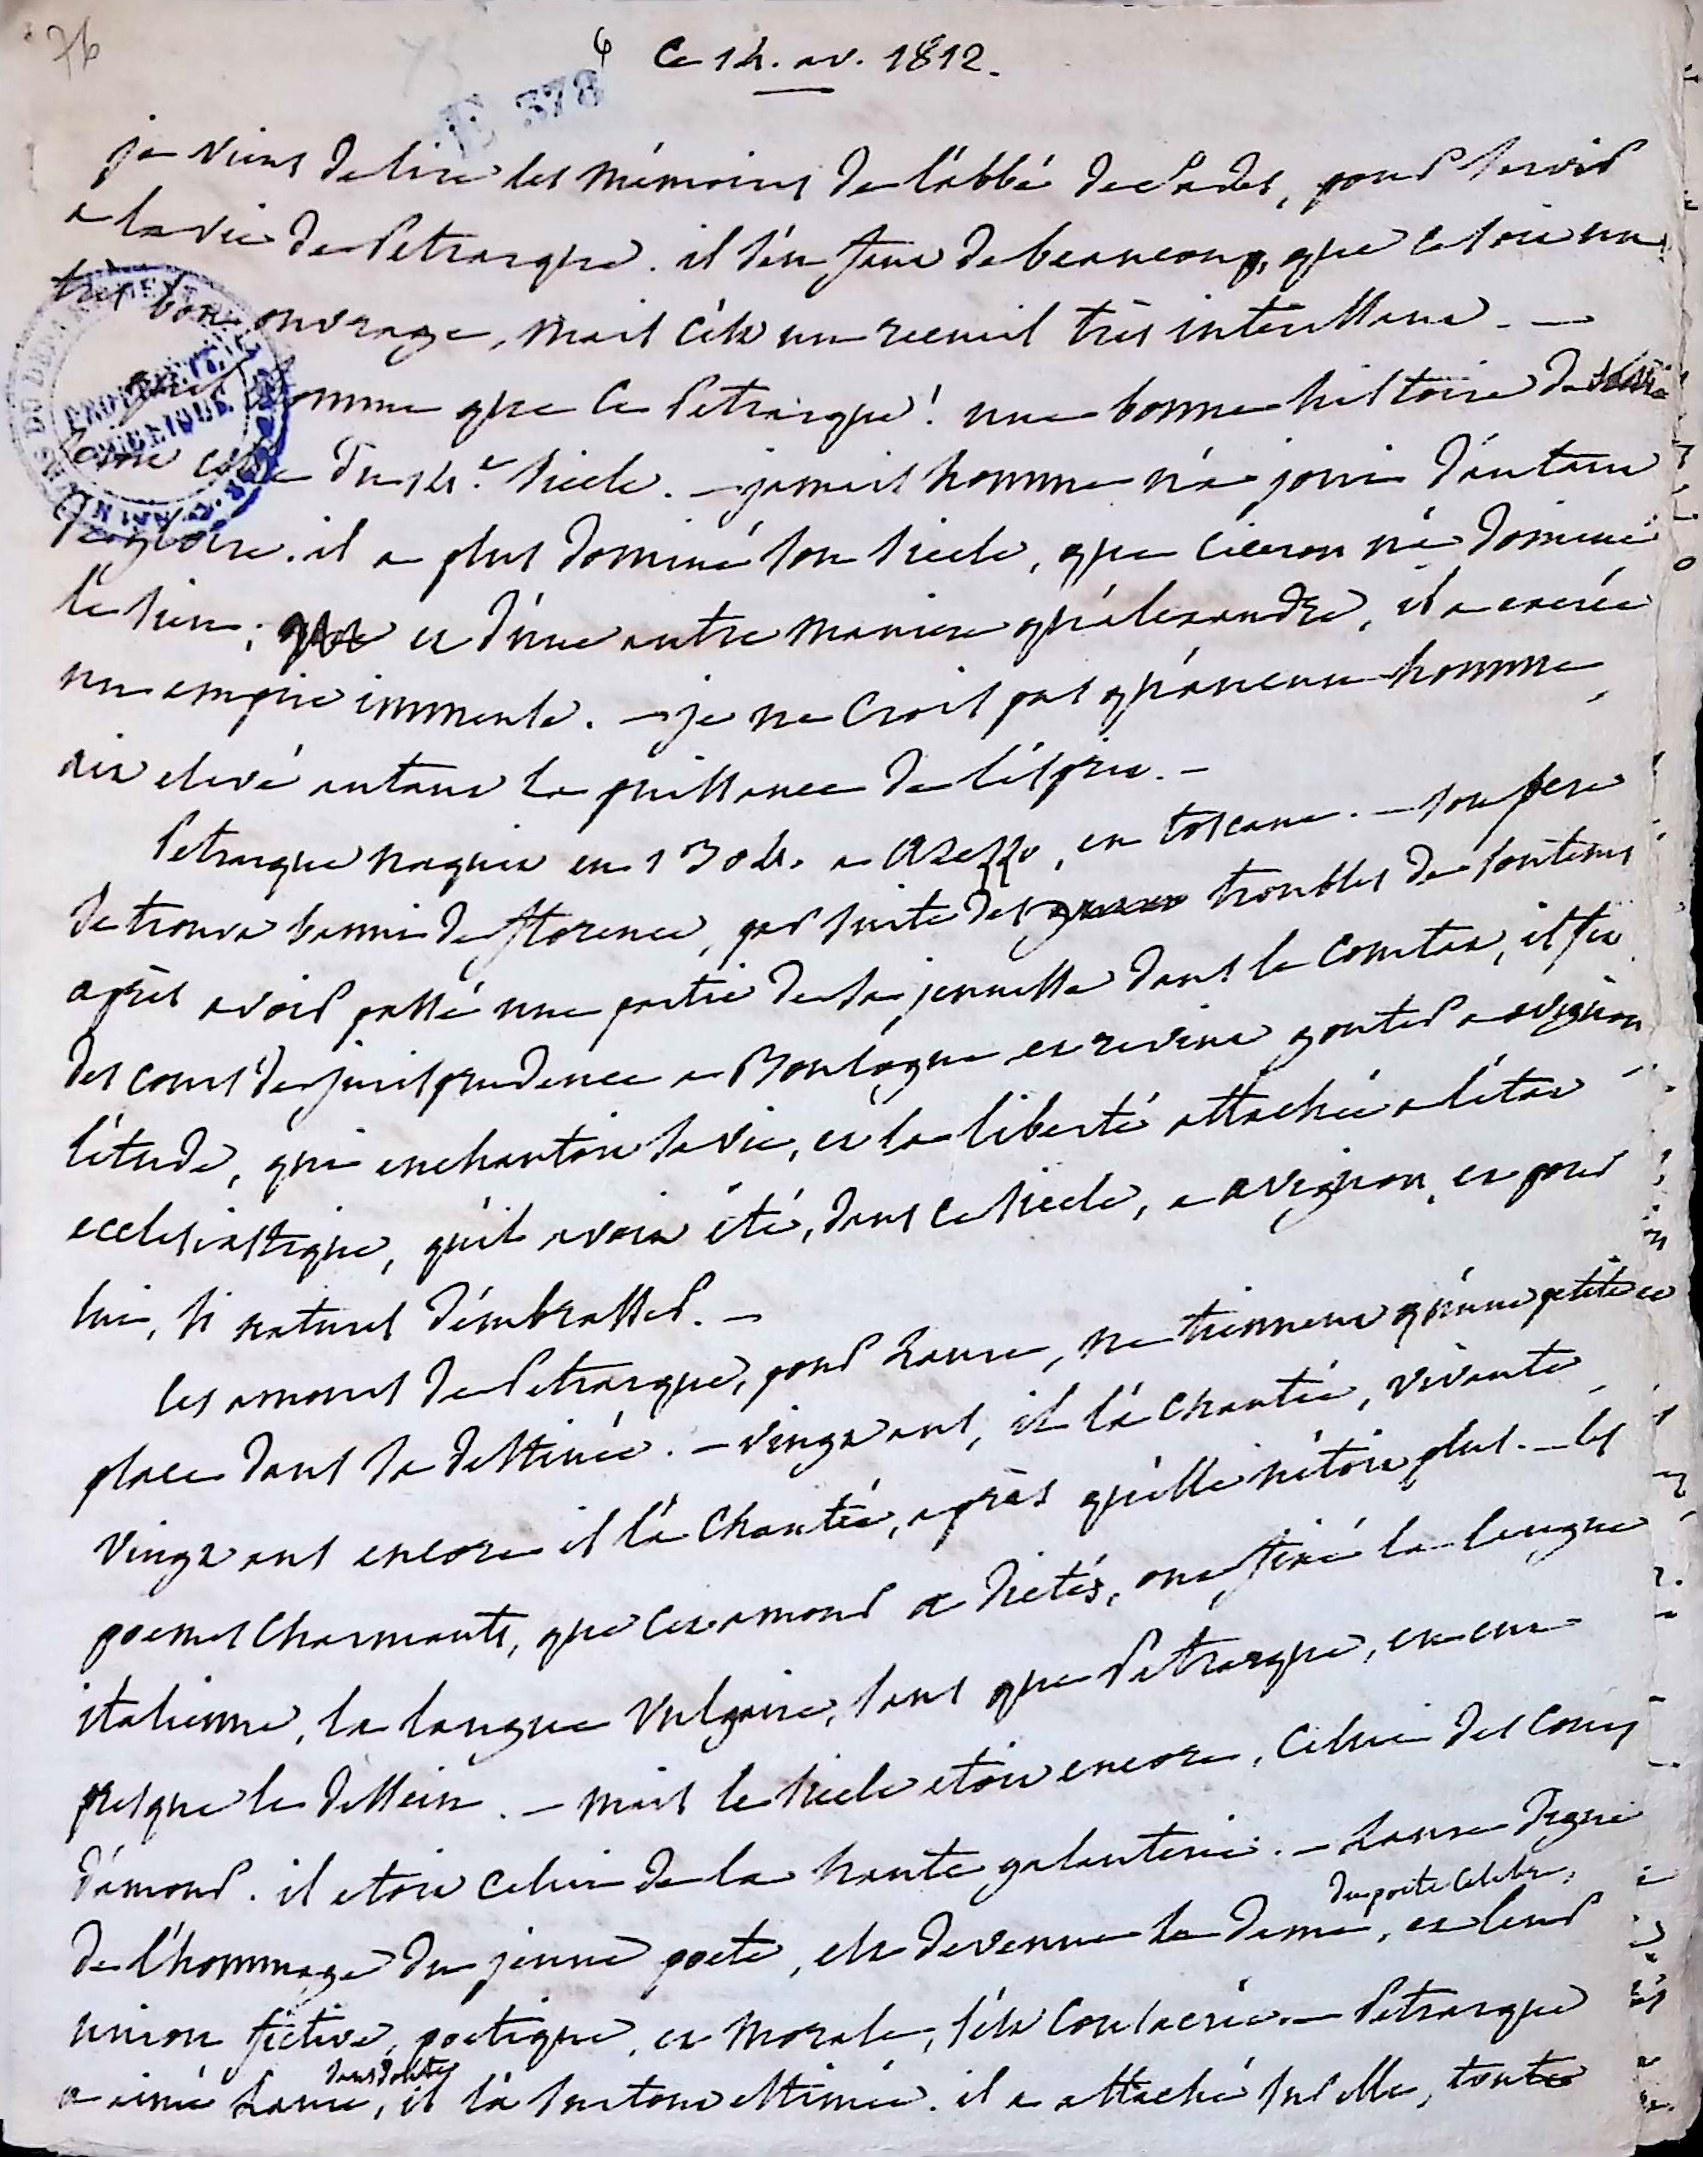 76
Ce 14. av. 1812.
E 378
je viens de lire les mémoires de l'abbé de Sades, pour servir
a la vie de Petrarque. il s'en faut de beaucoup, que ce soit un
très bon ouvrage, mais c'est un recueil très interessant. —
homme que ce Petrarque! une bonne histoire de
seroit celle du 14.e siecle. — jamais homme n'a joui d'autant
de gloire. il a plus dominé son siecle, que Ciceron n'a dominé
le sien; et d'une autre maniere qu'alexandre, il a exercé
un empire immense. — je ne crois pas qu'aucun homme
ait elevé autant la puissance de l'esprit. —
Petrarque naquit en 1304. a Arezzo, en toscane. — son pere
se trouva banni de florence, par suite des troubles de
après avoir passé une partie de sa jeunesse dans le comtat, il fit
des cours de jurisprudence a Boulogne et revint gouter a avignon
l'étude, qui enchantoit sa vie, et la liberté attachée a l'état
ecclesiastique, qu'il avoit été, dans ce siecle, a avignon, et pour
lui, si naturel d'embrasser. —
les amours de Petrarque, pour Laure, ne tiennent qu'une petite
place dans sa destinée. — vingt ans, il l'a chantée, vivante
vingt ans encore il l'a chantée, après qu'elle n'étoit plus. — les
poemes charmants, que cet amour a dictés, ont fixé la langue
italienne, la langue vulgaire, sans que Petrarque, en eut
presque le dessein. — mais le siecle etoit encore, celui des cours
d'amour. il etoit celui de la haute galanterie. — Laure digne
de l'hommage du jeune poete, est devenue la dame, du poete celebre, et leur
union fictive, poetique, et morale, s'est consacrée. — Petrarque
a aimé Laure, sans doute, il l'a surtout estimée. il a attaché sur elle, toute